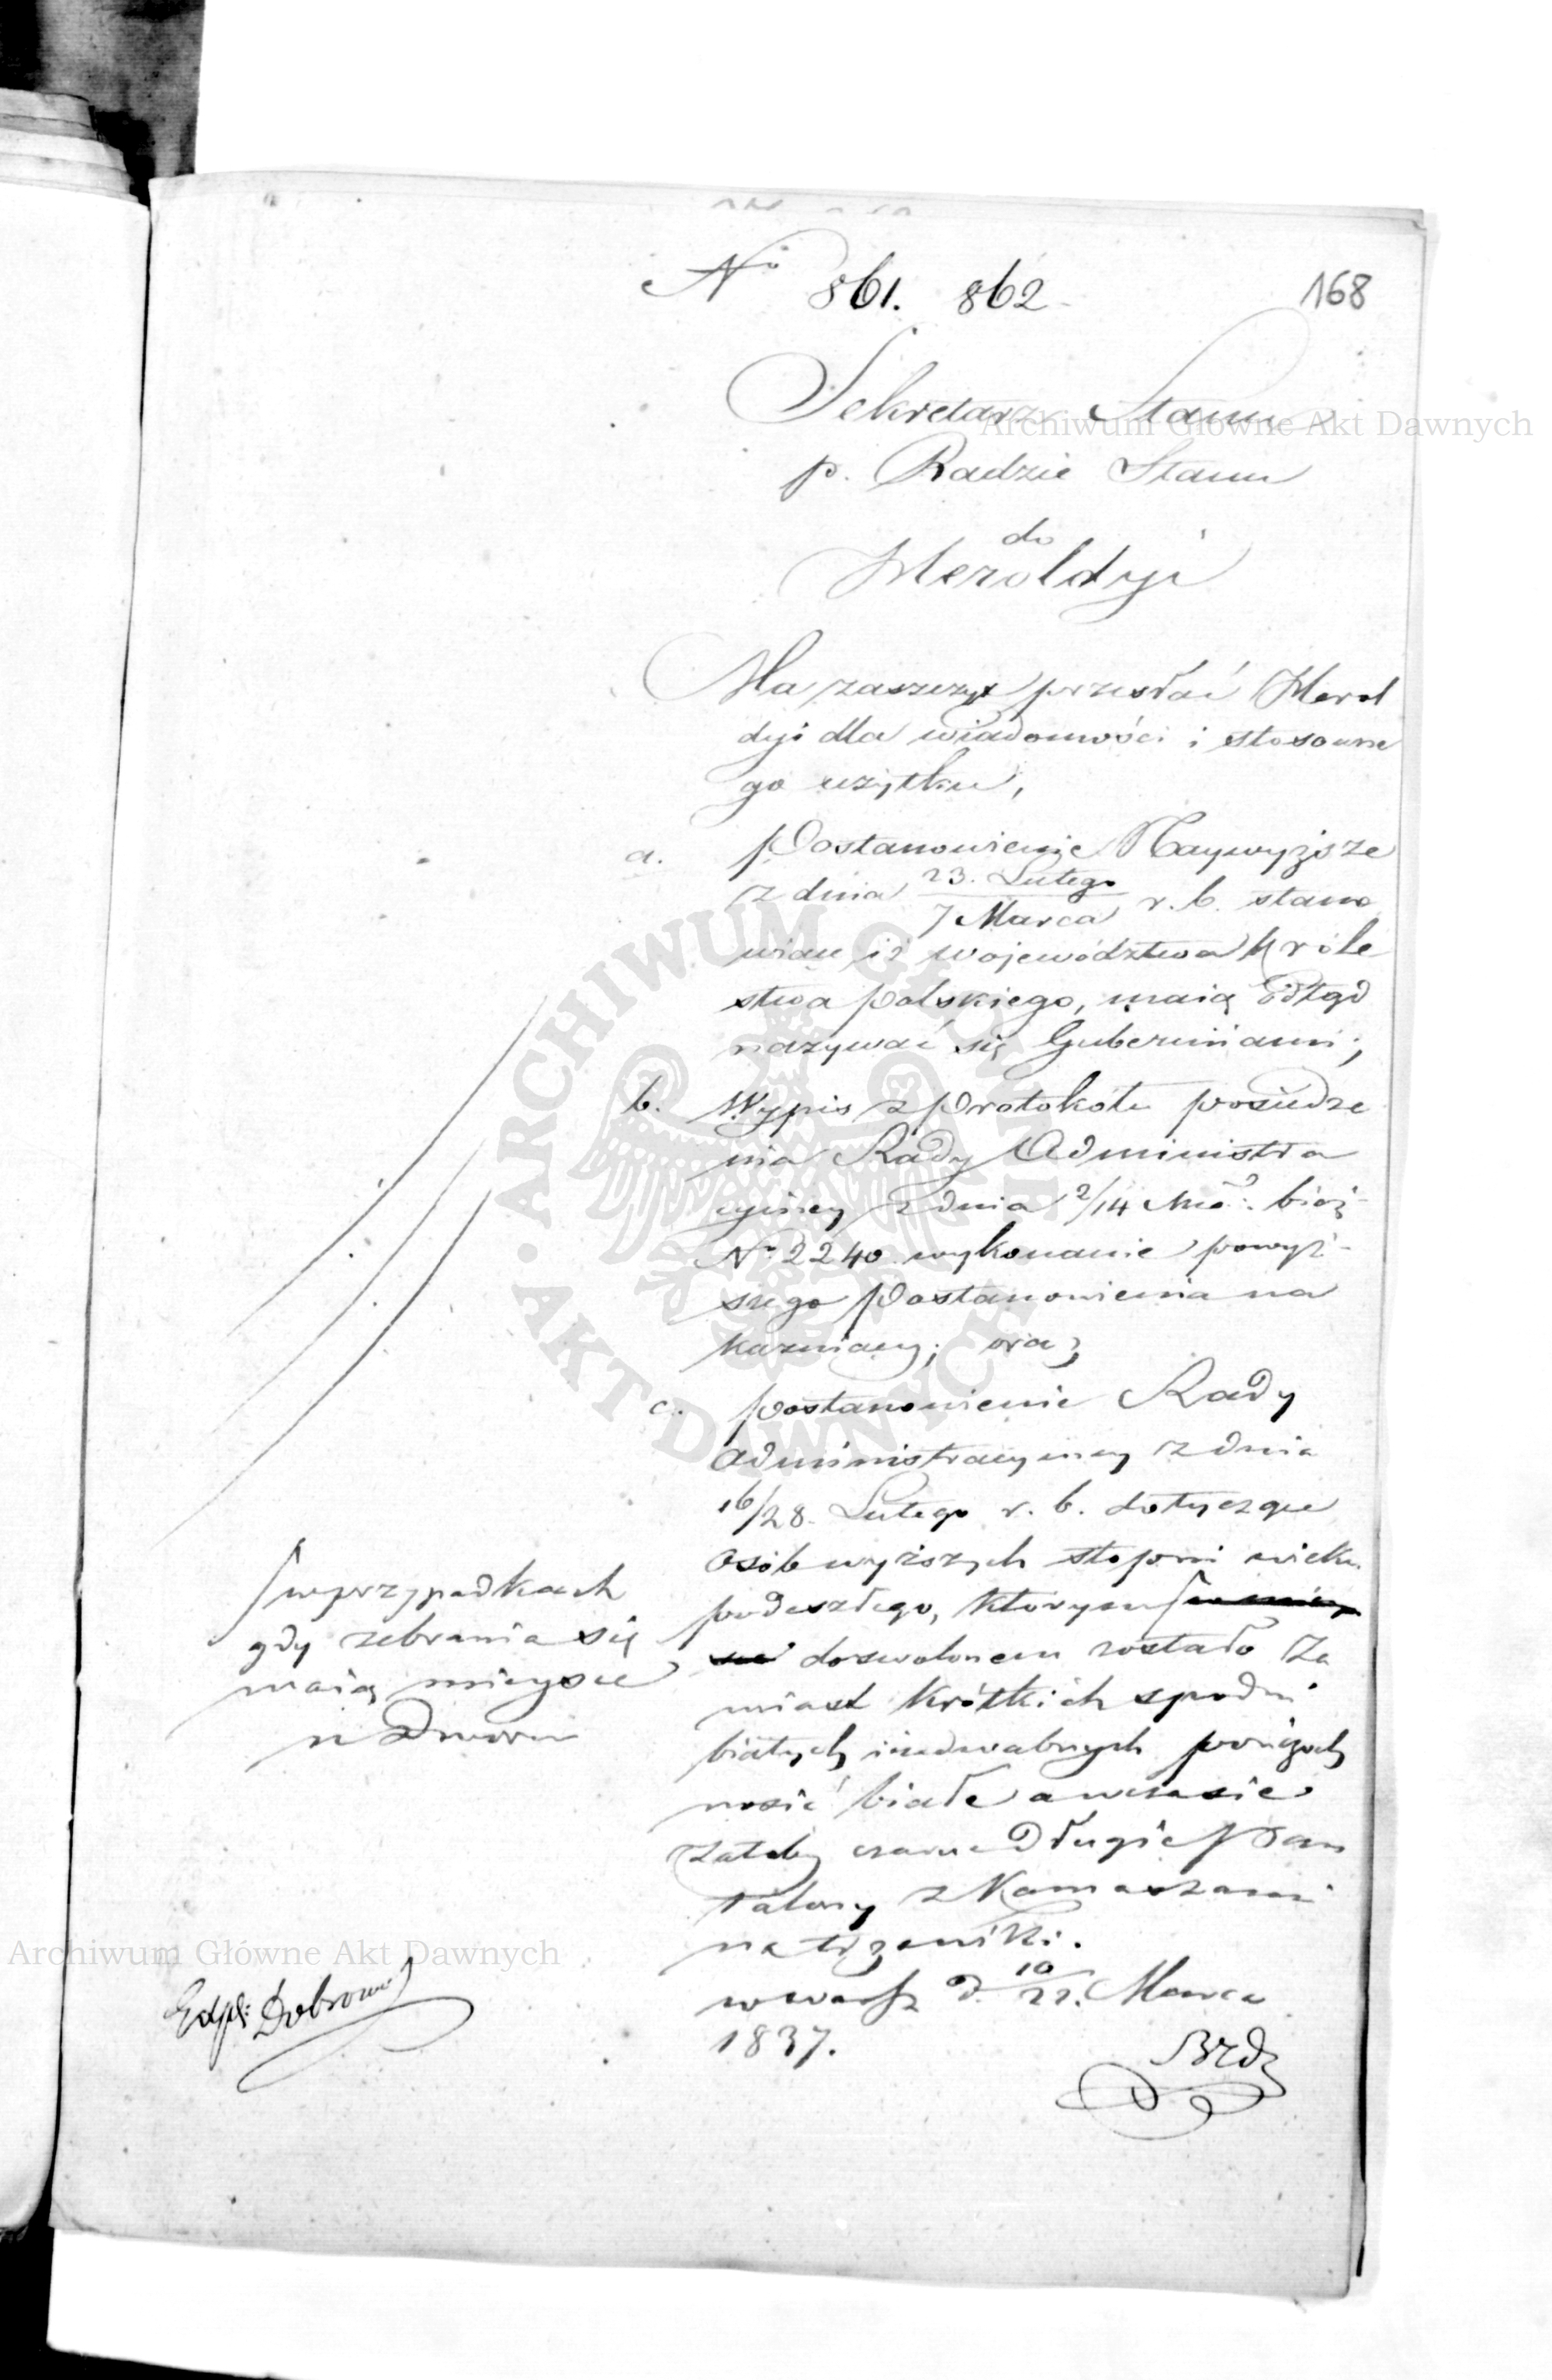 168
No 861. 862
Sekretarz Stanu
p. Radzie Stanu
do
Heroldyi
Ma zaszczyt przesłać Herol
dyi dla wiadomości i stosowne
go użytku,
a. Postanowienie Naywyższe
z dnia 23. Lutego / 7 Marca r. b. stano
wiące iż Województwa Króle
stwa Polskiego, maią odtąd
nazywać się Guberniami;
b. Wypis z Protokołu posiedze
nia Rady Administra
cyiney z dnia 2/14 bież
No 2240 wykonanie powyż-
szego Postanowienia na
kazuiący; oraz
c. Postanowienie Rady
Administracyiney z dnia
16/28. Lutego r. b. dotyczące
osób wyższych stopni wieku
podeszłego, którym
dozwolonem zostało za
miast krótkich spodni
białych i iedwabnych pończoch
nosić białe a w czasie
żałoby czarne długie Pan
talony z Kamaszami
na trzewiki.
w Warsz d. 10/22. Marca
1837.
Brdz
w przypadkach
gdy zebrania się
maią mieysce
u Dworu
Exp: Dobrow
Archiwum Główne Akt Dawnych
ARCHIWUM GŁÓWNE
AKT DAWNYCH
Archiwum Główne Akt Dawnych